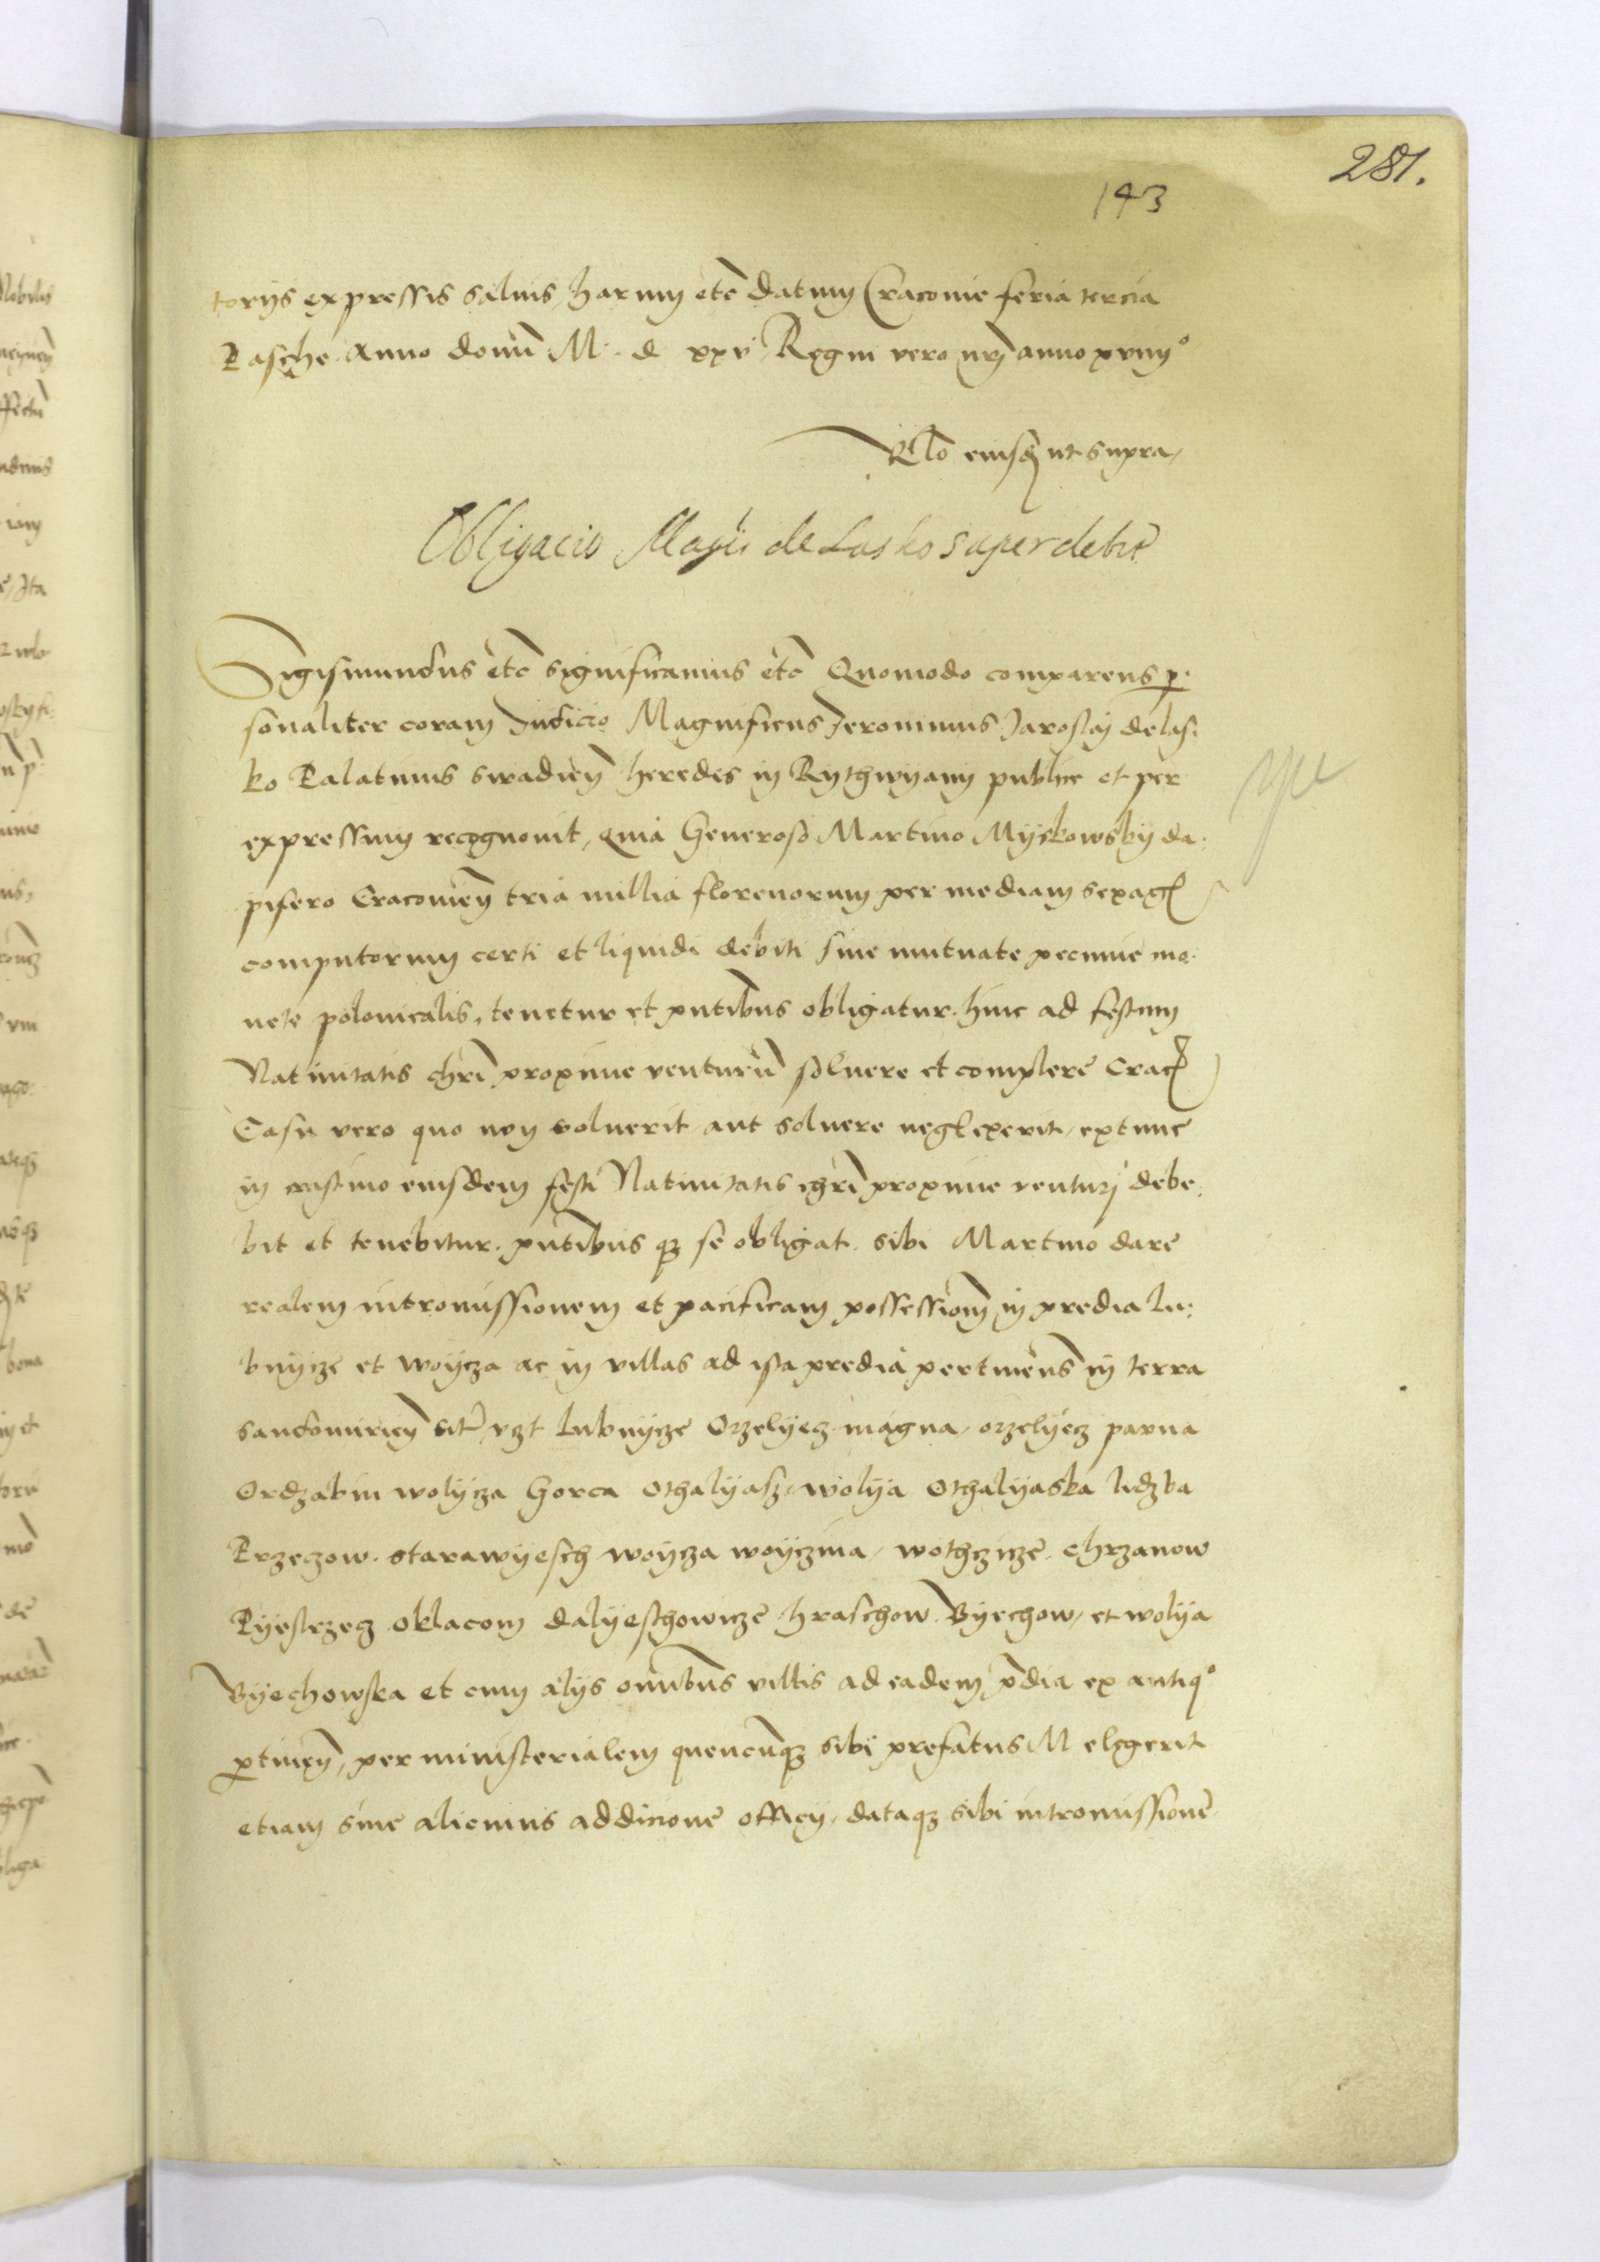 281.
143
torijs expressis salvis, harum etc datum Cracovie feria tercia
Pasche Anno domi M. d xxv Regni vero nrj anno xviiij°
Rlo eiusdem ut supra,
Obligacio Magci de Lasko super debit
Sigismundus etc significamus etc Quomodo comparens per
sonaliter coram Judicio Magnificus Jeronimus Jaroslai de las
ko Palatinus siradien heredes in Rythwyany publice et per
expressum recognovit, quia Generoso Martino Myskowsky da
pifero Cracovien tria millia florenorum per mediam sexag
computorum certi et liquidi debiti sive mutuate pecunie mo
nete polonicalis, tenetur et pntibus obligatur, hinc ad festum
Nativitatis chri proxime venturum solvere et complere Crac
Casu vero quo non solverit aut solvere neglexerit, extunc
in crastino eiusdem festi Nativitatis chri proxime venturj debe
bit et tenebitur, pntibus qz se obligat sibi Martino dare
realem intromissionem et pacificam possessionem in predia lu
bnycze et woycza ac in villas ad ista predia pertinens in terra
sandomirien sit vzt lubnycze Orzelyecz magna, orzelyecz parva
Ordzabin wolycza Gorca Othalyasz, wolya Othalyaska lidzba
Przeczow, starawyesch woycza woyczina, wothczicze chrzanow
Pyeslrzecz oklacom dalyeschowicze hraschow Byechow, et wolya
Byechowska et cum alijs omnibus villis ad eadem pdia ex antiq°
ptinen, per ministerialem quencumqz sibi prefatus M elegerit
etiam sine alicuius addicione officij, dataqz sibi intromissione